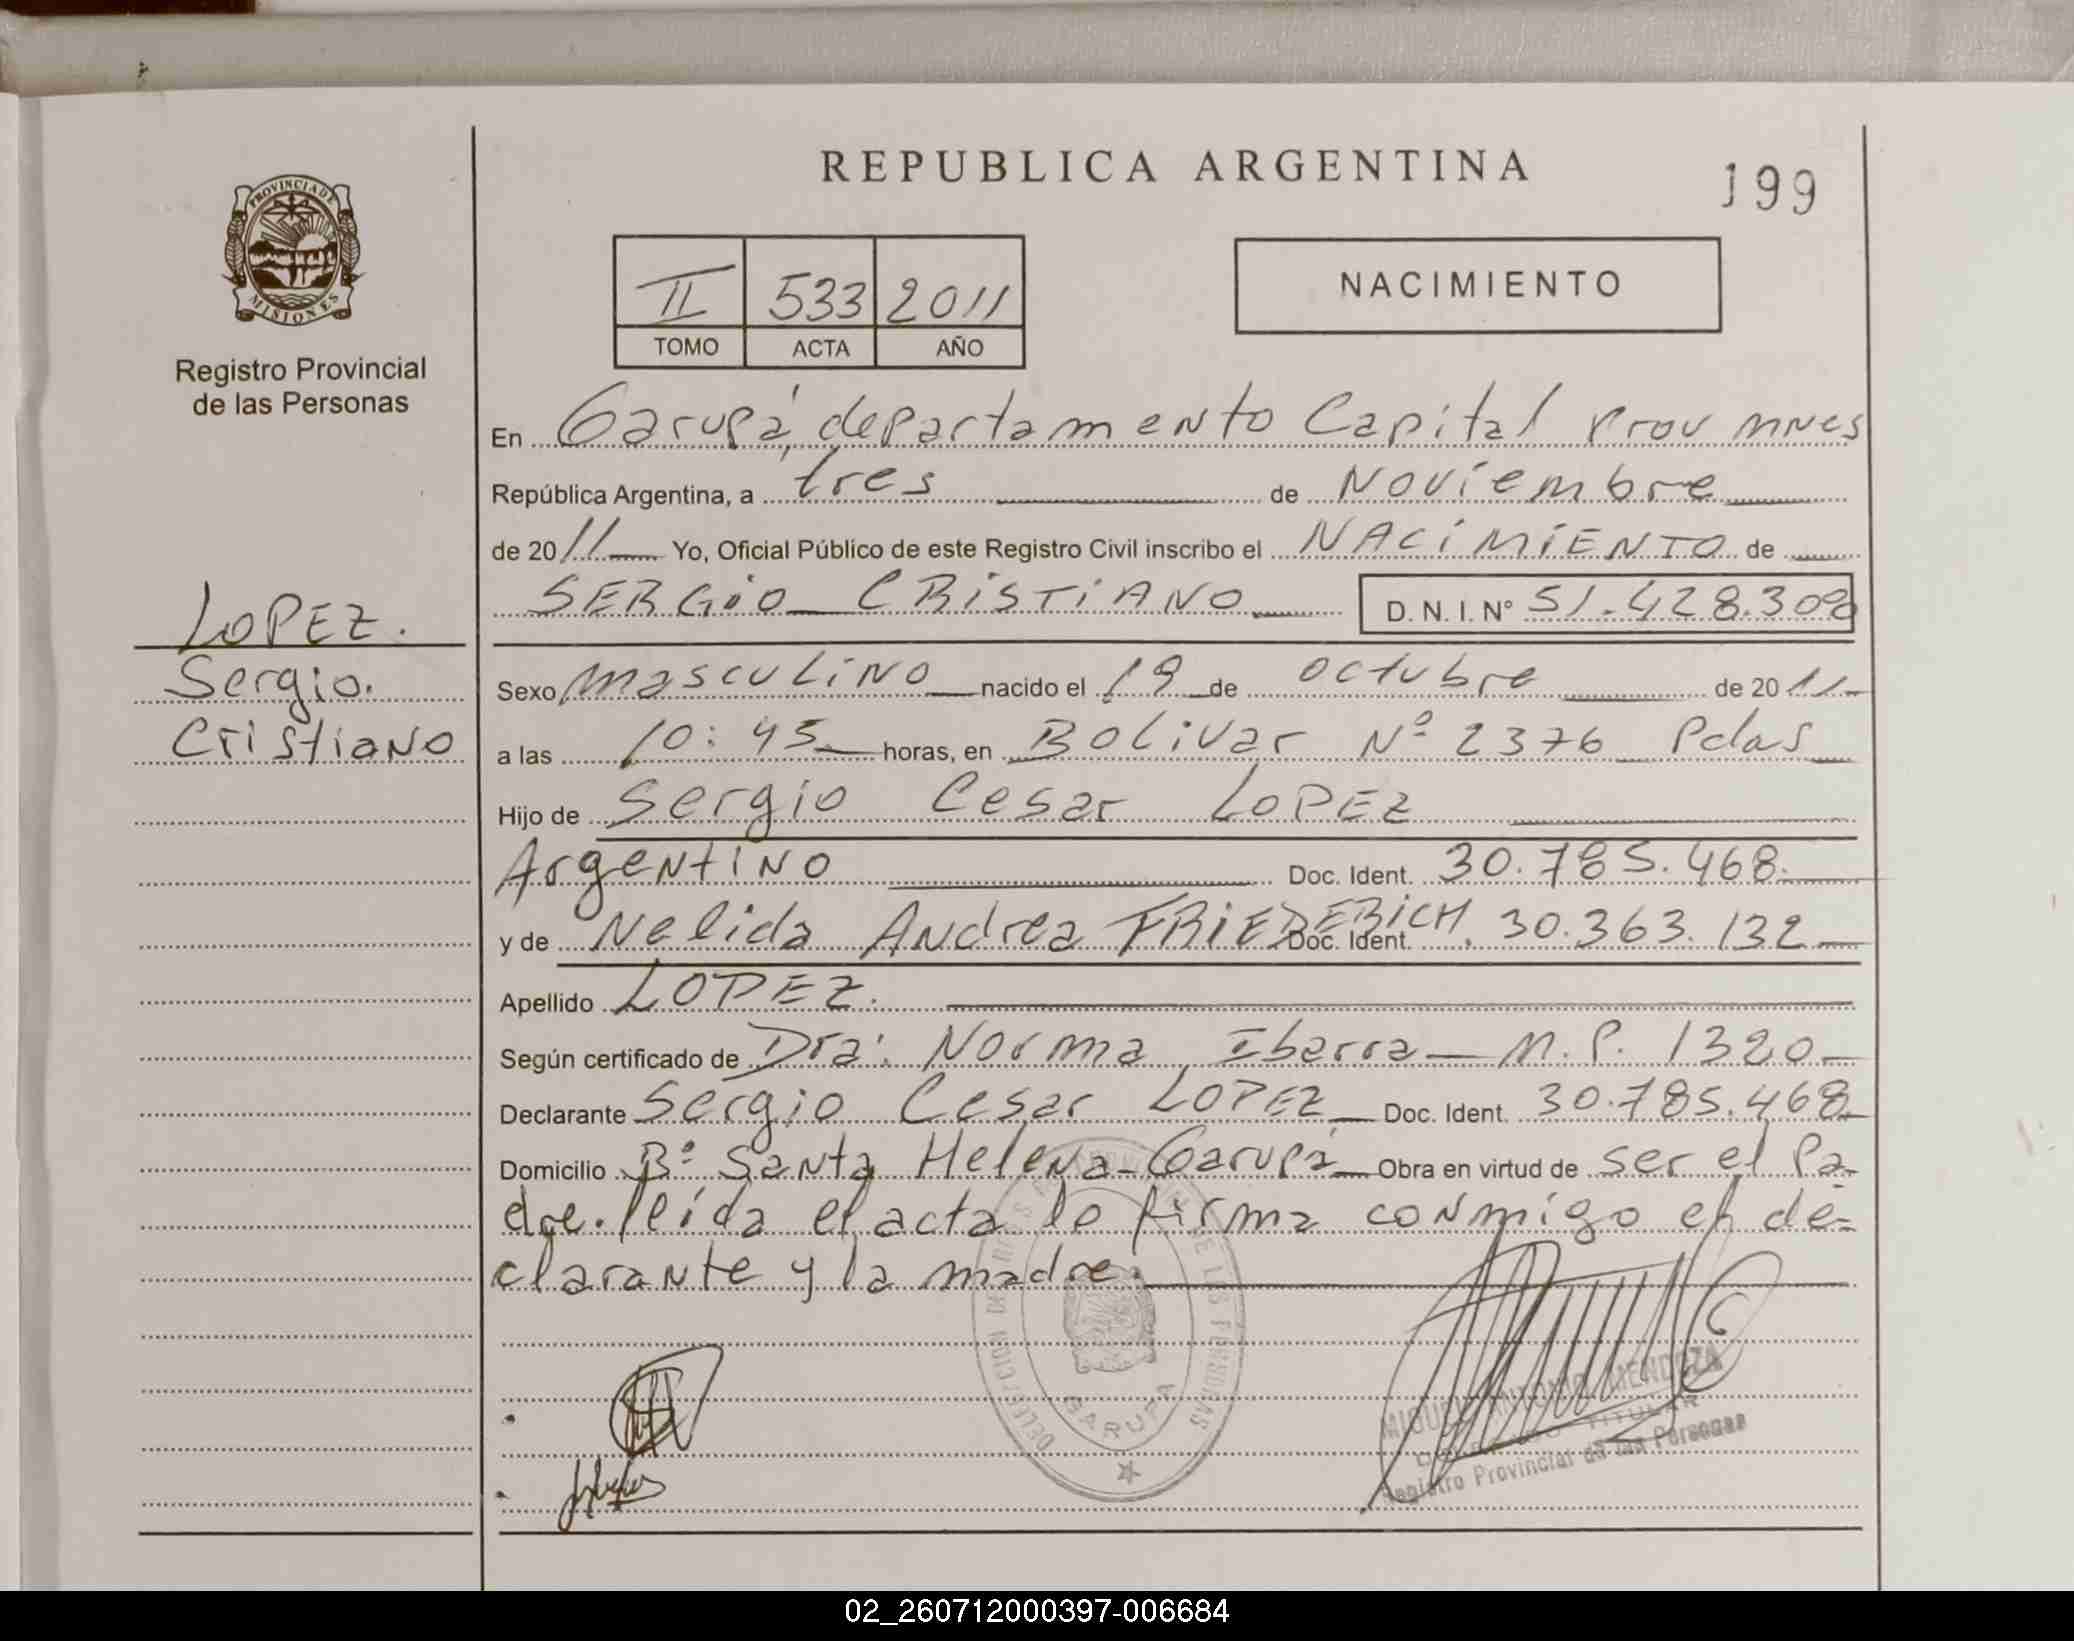 REPUBLICA ARGENTINA
199
PROVINCIA DE
MISIONES
Registro Provincial
de las Personas
II 533 2011
TOMO ACTA AÑO
NACIMIENTO
En Garupá, departamento Capital Prov mnes
República Argentina, a tres de Noviembre
de 2011 Yo, Oficial Público de este Registro Civil inscribo el NACIMIENTO de
SERGIO CRISTIANO D.N.I. N° 51.428.309
LOPEZ.
Sergio.
Cristiano
Sexo masculino nacido el 19 de octubre de 2011
a las 10:45 horas, en Bolivar Nº 2376 Pdas
Hijo de Sergio Cesar LOPEZ
Argentino Doc. Ident. 30.785.468.
y de Nelida Andrea FRIEDERICH Doc. Ident. 30.363.132
Apellido LOPEZ.
Según certificado de Dra: Norma Ibarra M.P. 1320
Declarante Sergio Cesar LOPEZ Doc. Ident. 30.785.468
Domicilio Bº Santa Helena - Garupá Obra en virtud de ser el Pa-
dre. leída el acta lo firma conmigo el de-
clarante y la madre.
GARUPA
MIGUEL ANTONIO MENDOZA
TITULAR
Registro Provincial de las Personas
02_260712000397-006684